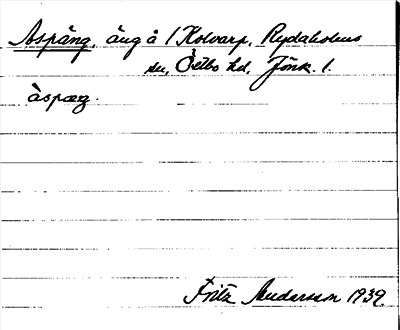 Aspäng, äng å 1 Kolvarp, Rydaholms
sn, Östbo hd, Jönk. l.
àspæŋ.
Fritz Andersson 1939.